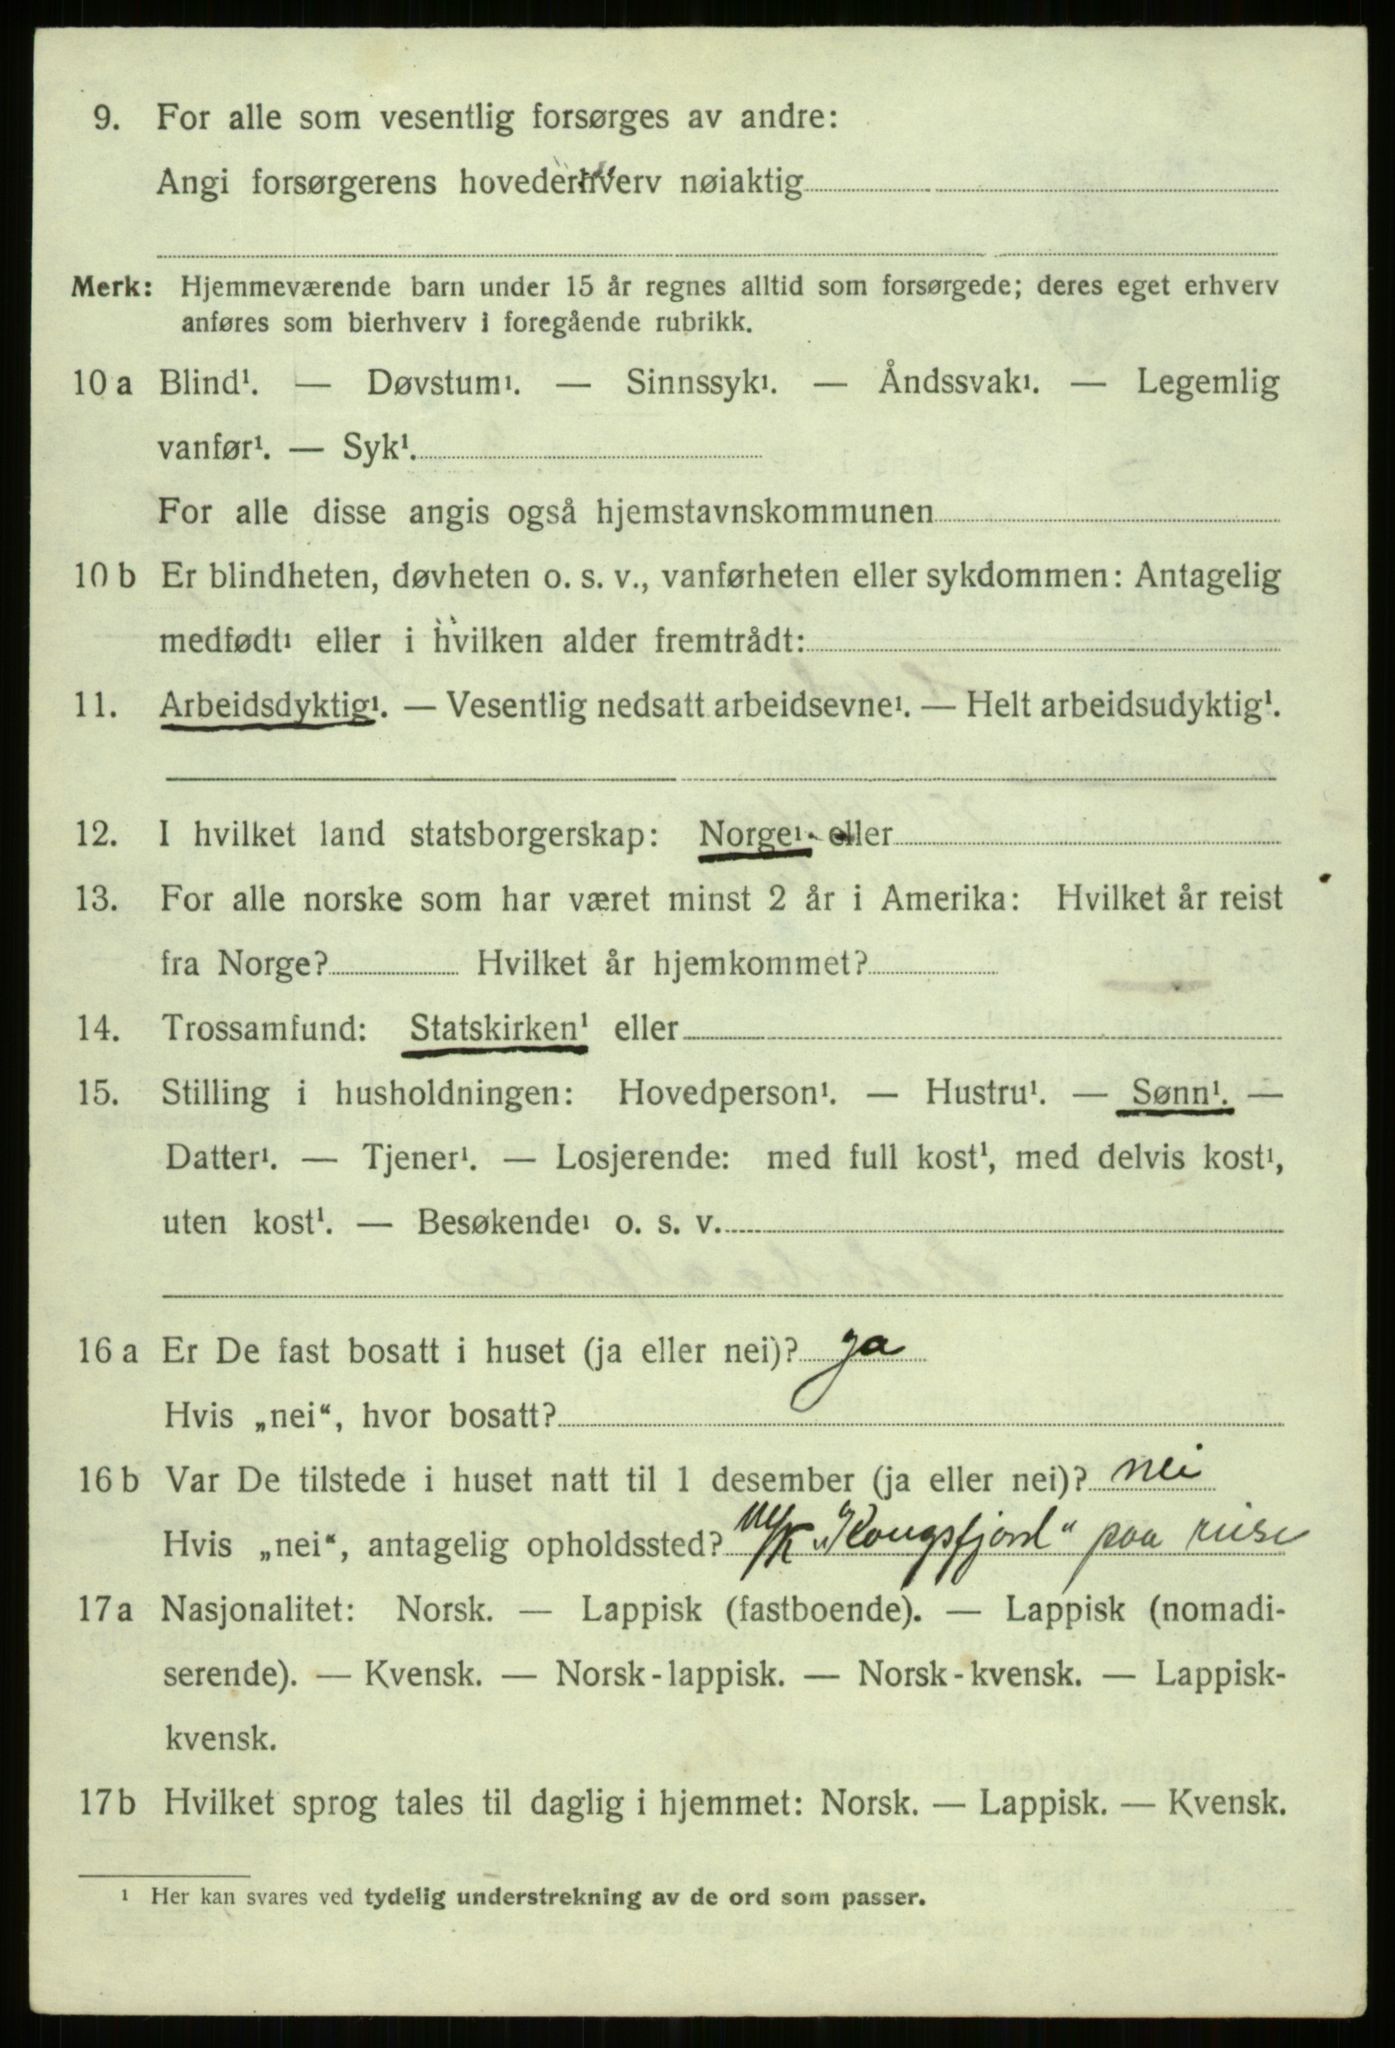 9. For alle som vesentlig forsørges av andre:
Angi forsørgerens hovederhverv nøiaktig
Merk: Hjemmeværende barn under 15 år regnes alltid som forsørgede; deres eget erhverv
anføres som bierhverv i foregående rubrikk.
10 a Blind¹. — Døvstum¹. — Sinnssyk¹. — Åndssvak¹. — Legemlig
vanfør¹. — Syk¹.
For alle disse angis også hjemstavnskommunen
10 b Er blindheten, døvheten o. s. v., vanførheten eller sykdommen: Antagelig
medfødt¹ eller i hvilken alder fremtrådt:
11. Arbeidsdyktig¹. — Vesentlig nedsatt arbeidsevne¹. — Helt arbeidsudyktig¹.
12. I hvilket land statsborgerskap: Norge¹. eller
13. For alle norske som har været minst 2 år i Amerika: Hvilket år reist
fra Norge? Hvilket år hjemkommet?
14. Trossamfund: Statskirken¹ eller
15. Stilling i husholdningen: Hovedperson¹. — Hustru¹. — Sønn¹. —
Datter¹. — Tjener¹. — Losjerende: med full kost¹, med delvis kost¹,
uten kost¹. — Besøkende¹ o. s. v.
16 a Er De fast bosatt i huset (ja eller nei)? ja
Hvis „nei“, hvor bosatt?
16 b Var De tilstede i huset natt til 1 desember (ja eller nei)? nei
Hvis „nei“, antagelig opholdssted? M/K „Kongsfjord“ paa reise
17 a Nasjonalitet: Norsk. — Lappisk (fastboende). — Lappisk (nomadi-
serende). — Kvensk. — Norsk-lappisk. — Norsk-kvensk. — Lappisk-
kvensk.
17 b Hvilket sprog tales til daglig i hjemmet: Norsk. — Lappisk. — Kvensk.
¹ Her kan svares ved tydelig understrekning av de ord som passer.